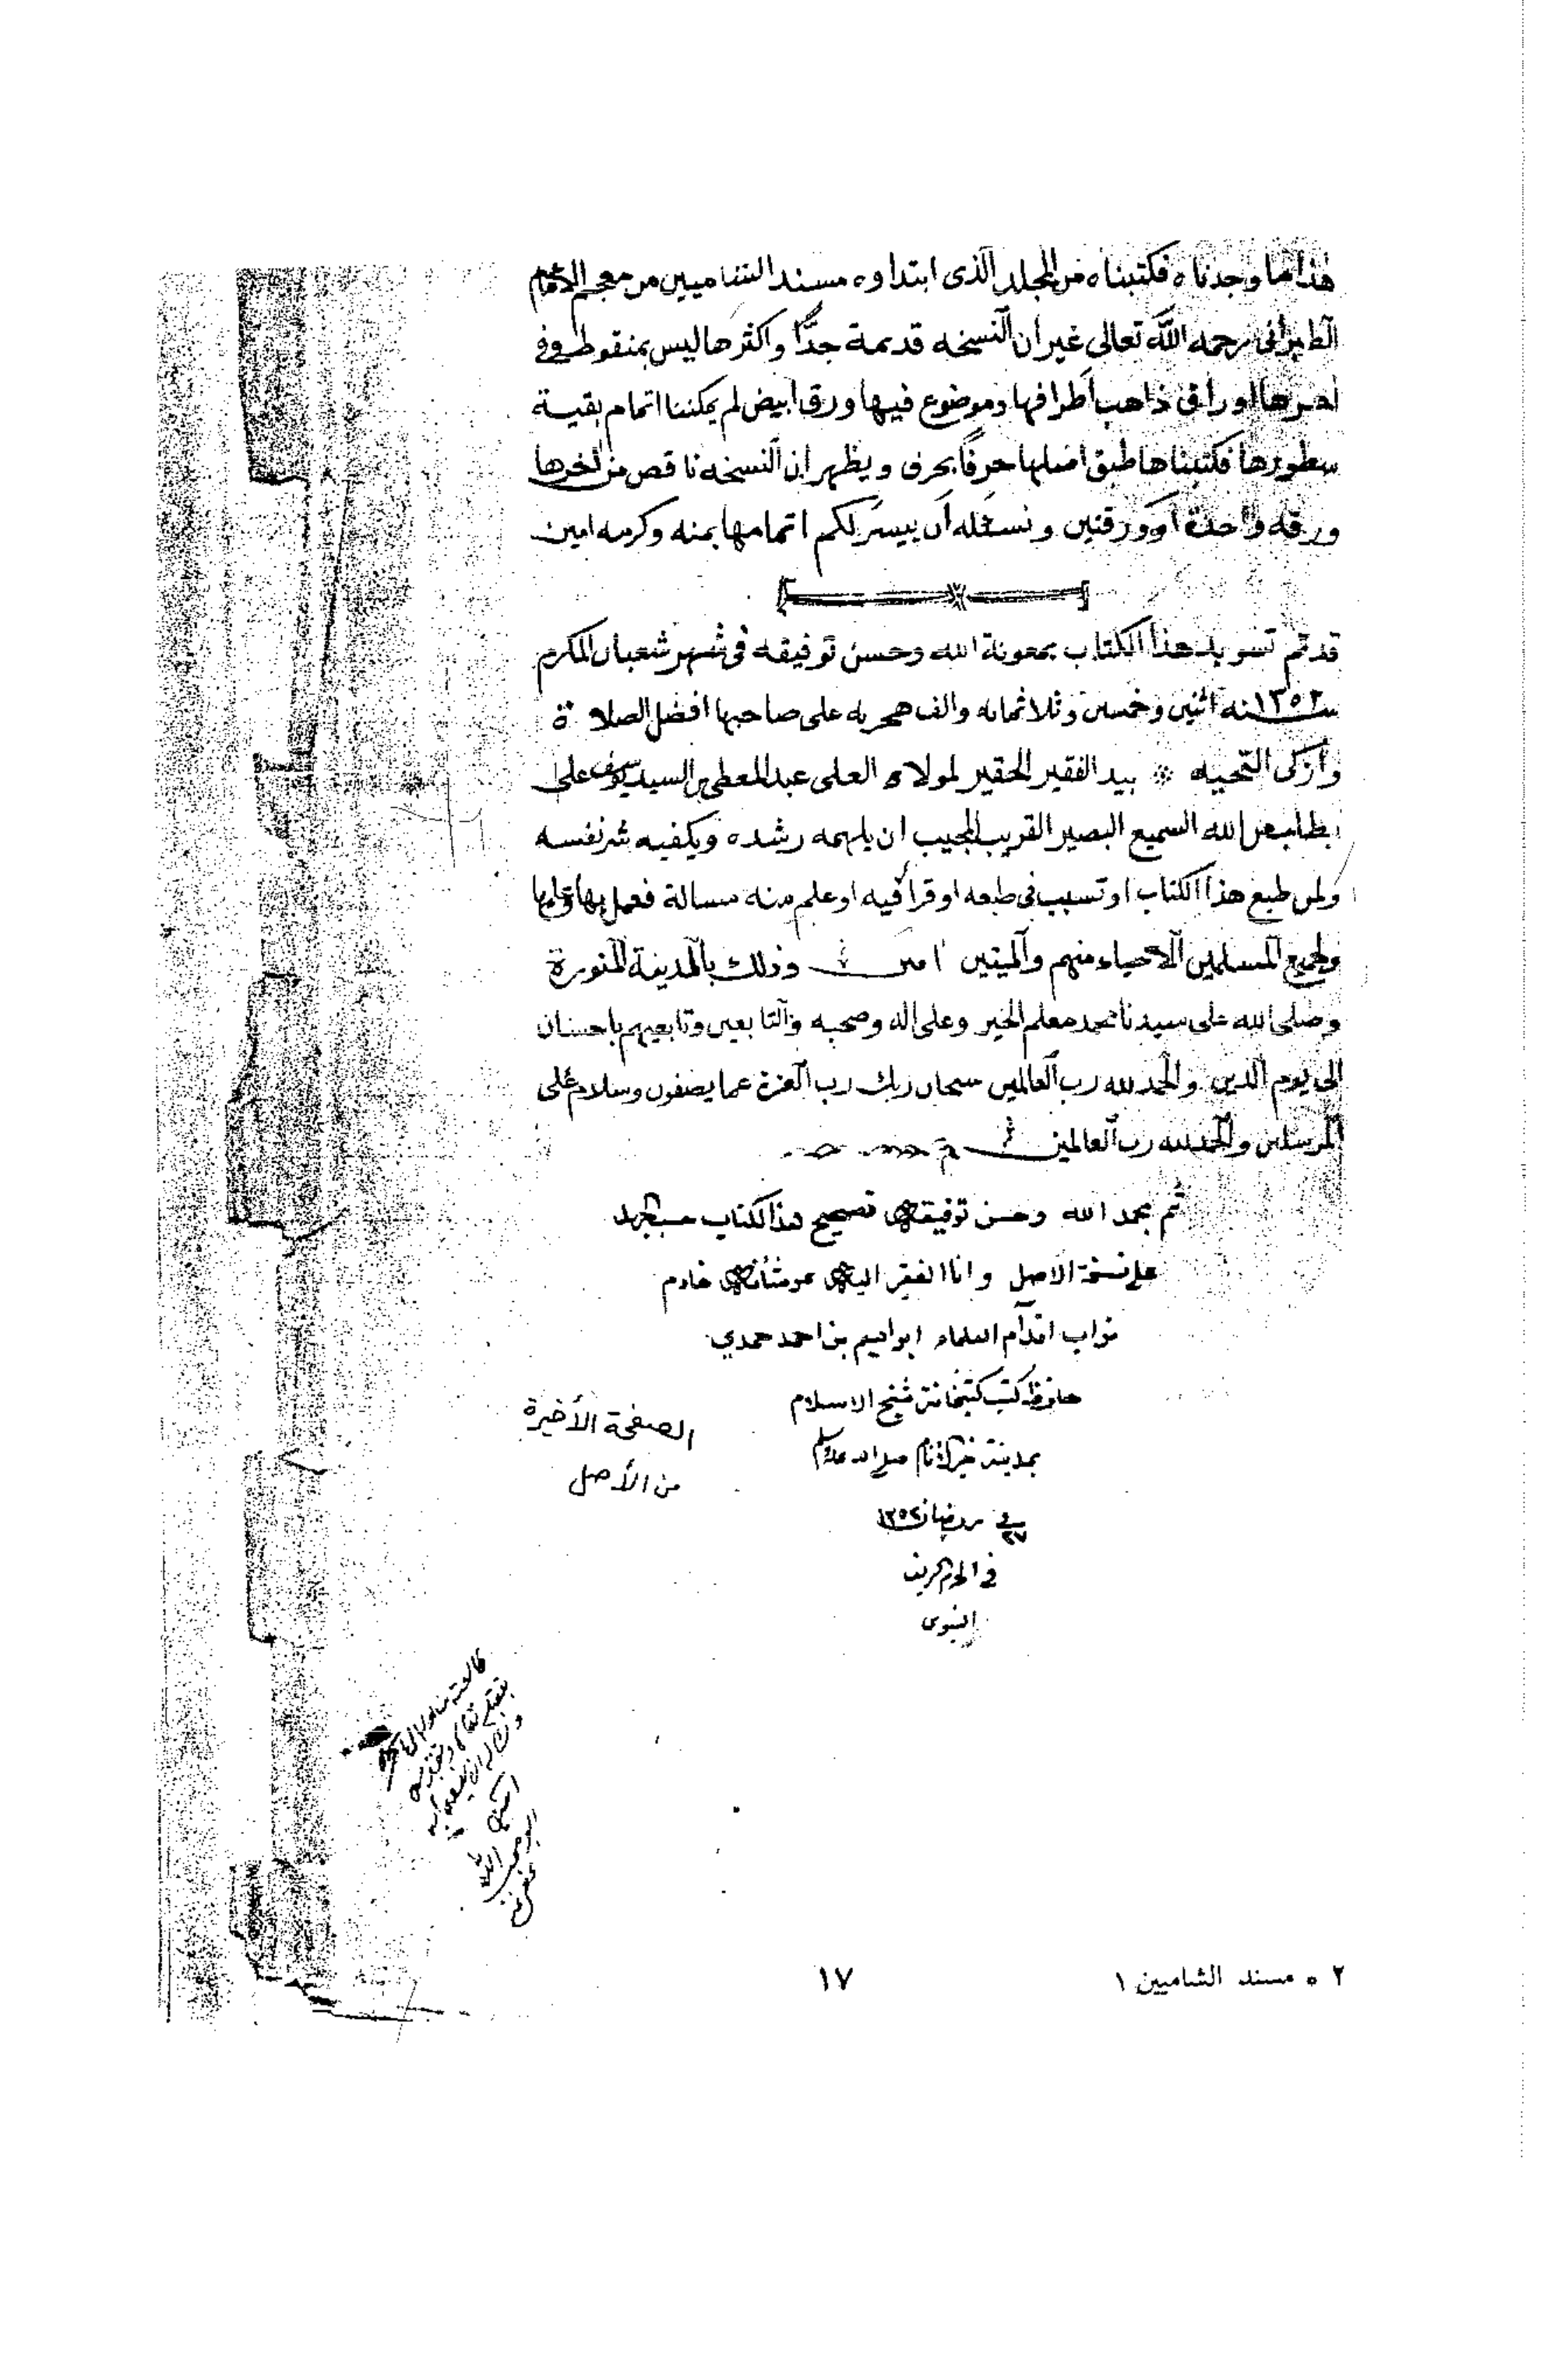 هذا ما وجدناه فكتبناه من المجلد الذى ابتداوه مسند الشاميين من معجم الامام
الطبرانى رحمه الله تعالى غير ان النسخه قديمة جدًّا واكثرها ليس بمنقوط وفى
اخرها اوراق ذاهب اطرافها وموضوع فيها ورق ابيض لم يمكننا اتمام بقية
سطورها فكتبناها طبق اصلها حرفًا بحرف ويظهر ان النسخه ناقص من اخرها
ورقه واحدة او ورقتين ونسئله أن ييسر لكم اتمامها بمنه وكرمه امين
قد تم تسويد هذا الكتاب بمعونة الله وحسن توفيقه فى شهر شعبان المكرم
سنه ١٣٥٢ اثنين وخمسين وثلاثمايه والف هجريه على صاحبها افضل الصلاة
وأزكى التحيه * بيد الفقير الحقير لمولاه العلى عبد المعطى بن السيد يوسف على
يطلب من الله السميع البصير القريب المجيب ان يلهمه رشده ويكفيه شر نفسه
ولمن طبع هذا الكتاب او تسبب فى طبعه او قرأ فيه او علم منه مسالة فعمل بها
ولجميع المسلمين الاحياء منهم والميتين امين وذلك بالمدينة المنورة
وصلى الله على سيدنا محمد معلم الخير وعلى اله وصحبه والتابعين وتابعيهم باحسان
الى يوم الدين والحمد لله رب العالمين سبحان ربك رب العزة عما يصفون وسلام على
المرسلين والحمد لله رب العالمين
تم بحمد الله وحسن توفيقه تصحيح هذا الكتاب حسب الجهد
على نسخة الاصل وانا الفقير اليه عز شأنه خادم
تراب اقدام العلماء ابراهيم بن احمد حمدي
حافظ كتب كتبخانة شيخ الاسلام
بمدينة خير الأنام صلى الله عليه وسلم
في ٢٧ رمضان ١٣٥٢
في الحرم الشريف
النبوى
الصفحة الأخيرة
من الأصل
٢ ٥ مسند الشاميين ١
١٧